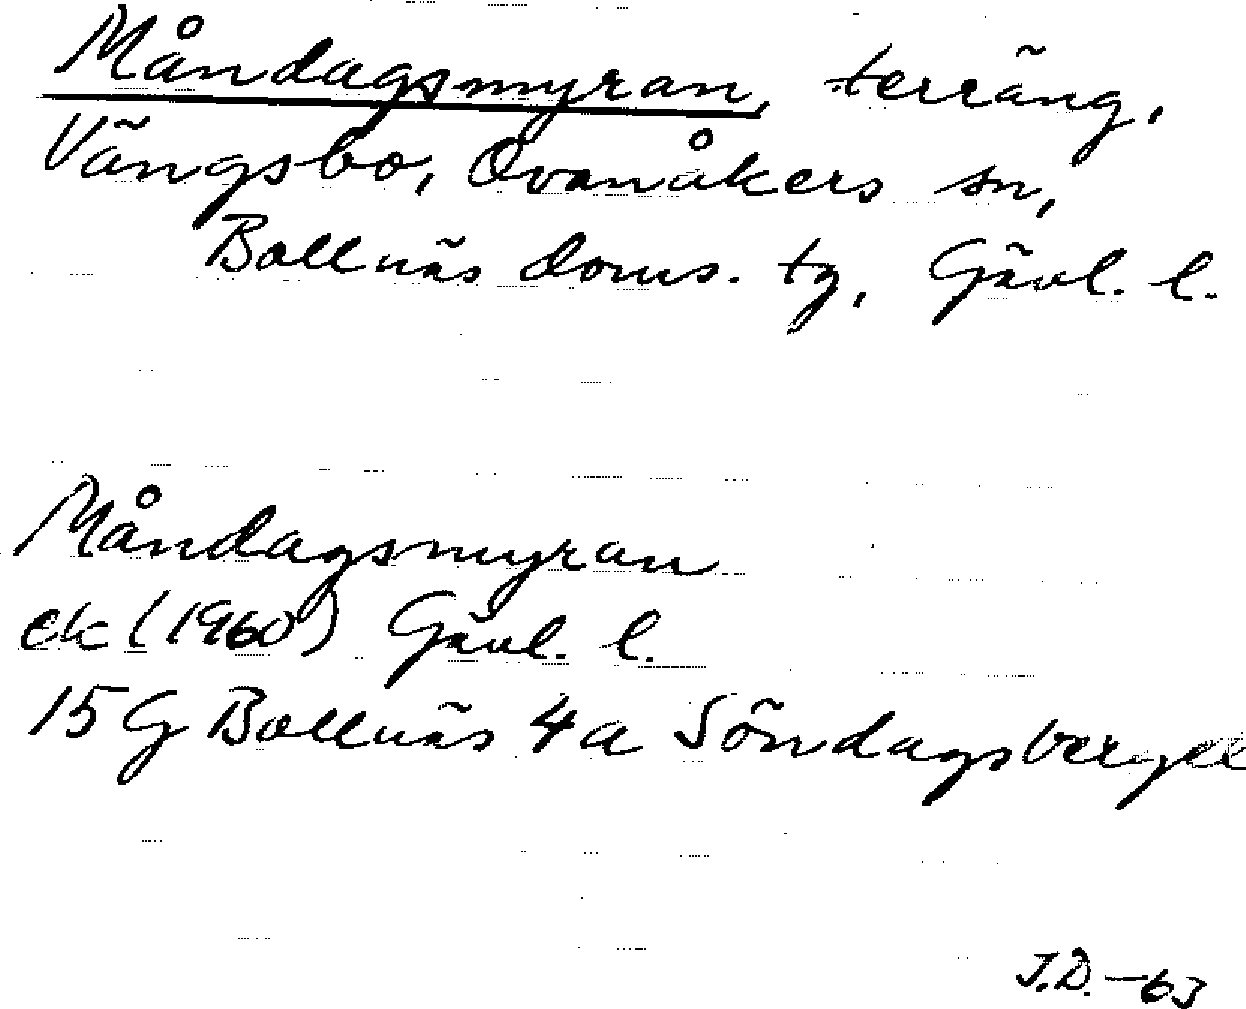 Måndagsmyran, terräng,
Vängsbo, Ovanåkers sn,
Bollnäs doms. tg, Gävl. l.
Måndagsmyran
ek (1960) Gävl. l.
15 G Bollnäs 4a Söndagsberget
J.D. - 63